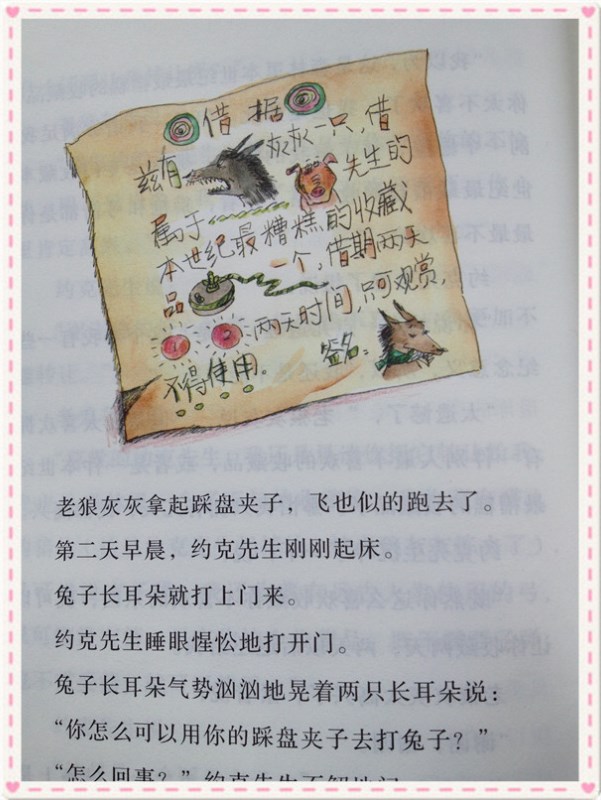 借据
兹有 灰灰一只,借
属于 先生的
本世纪最糟糕的收藏
品 一个,借期两天
两天时间只可观赏,
不得使用。 签名:
老狼灰灰拿起踩盘夹子,飞也似的跑去了。
第二天早晨,约克先生刚刚起床。
兔子长耳朵就打上门来。
约克先生睡眼惺忪地打开门。
兔子长耳朵气势汹汹地晃着两只长耳朵说:
“你怎么可以用你的踩盘夹子去打兔子?”
“怎么回事?”约克先生不解地问